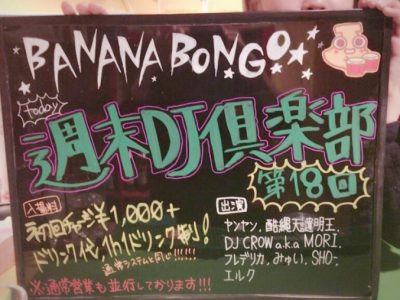 BANANA BONGO
today
週末DJ倶楽部
第18回
入場料
初回チャージ¥1,000+
ドリンク代、1h1ドリンク制り!
通常システムと同じ!!!!!
※通常営業も並行しております!!!
出演
ヤンヤン、酷縄天護明王、
DJ CROW a.k.a MORI、
フレデリカ、みゅい、SHO-、
エルク